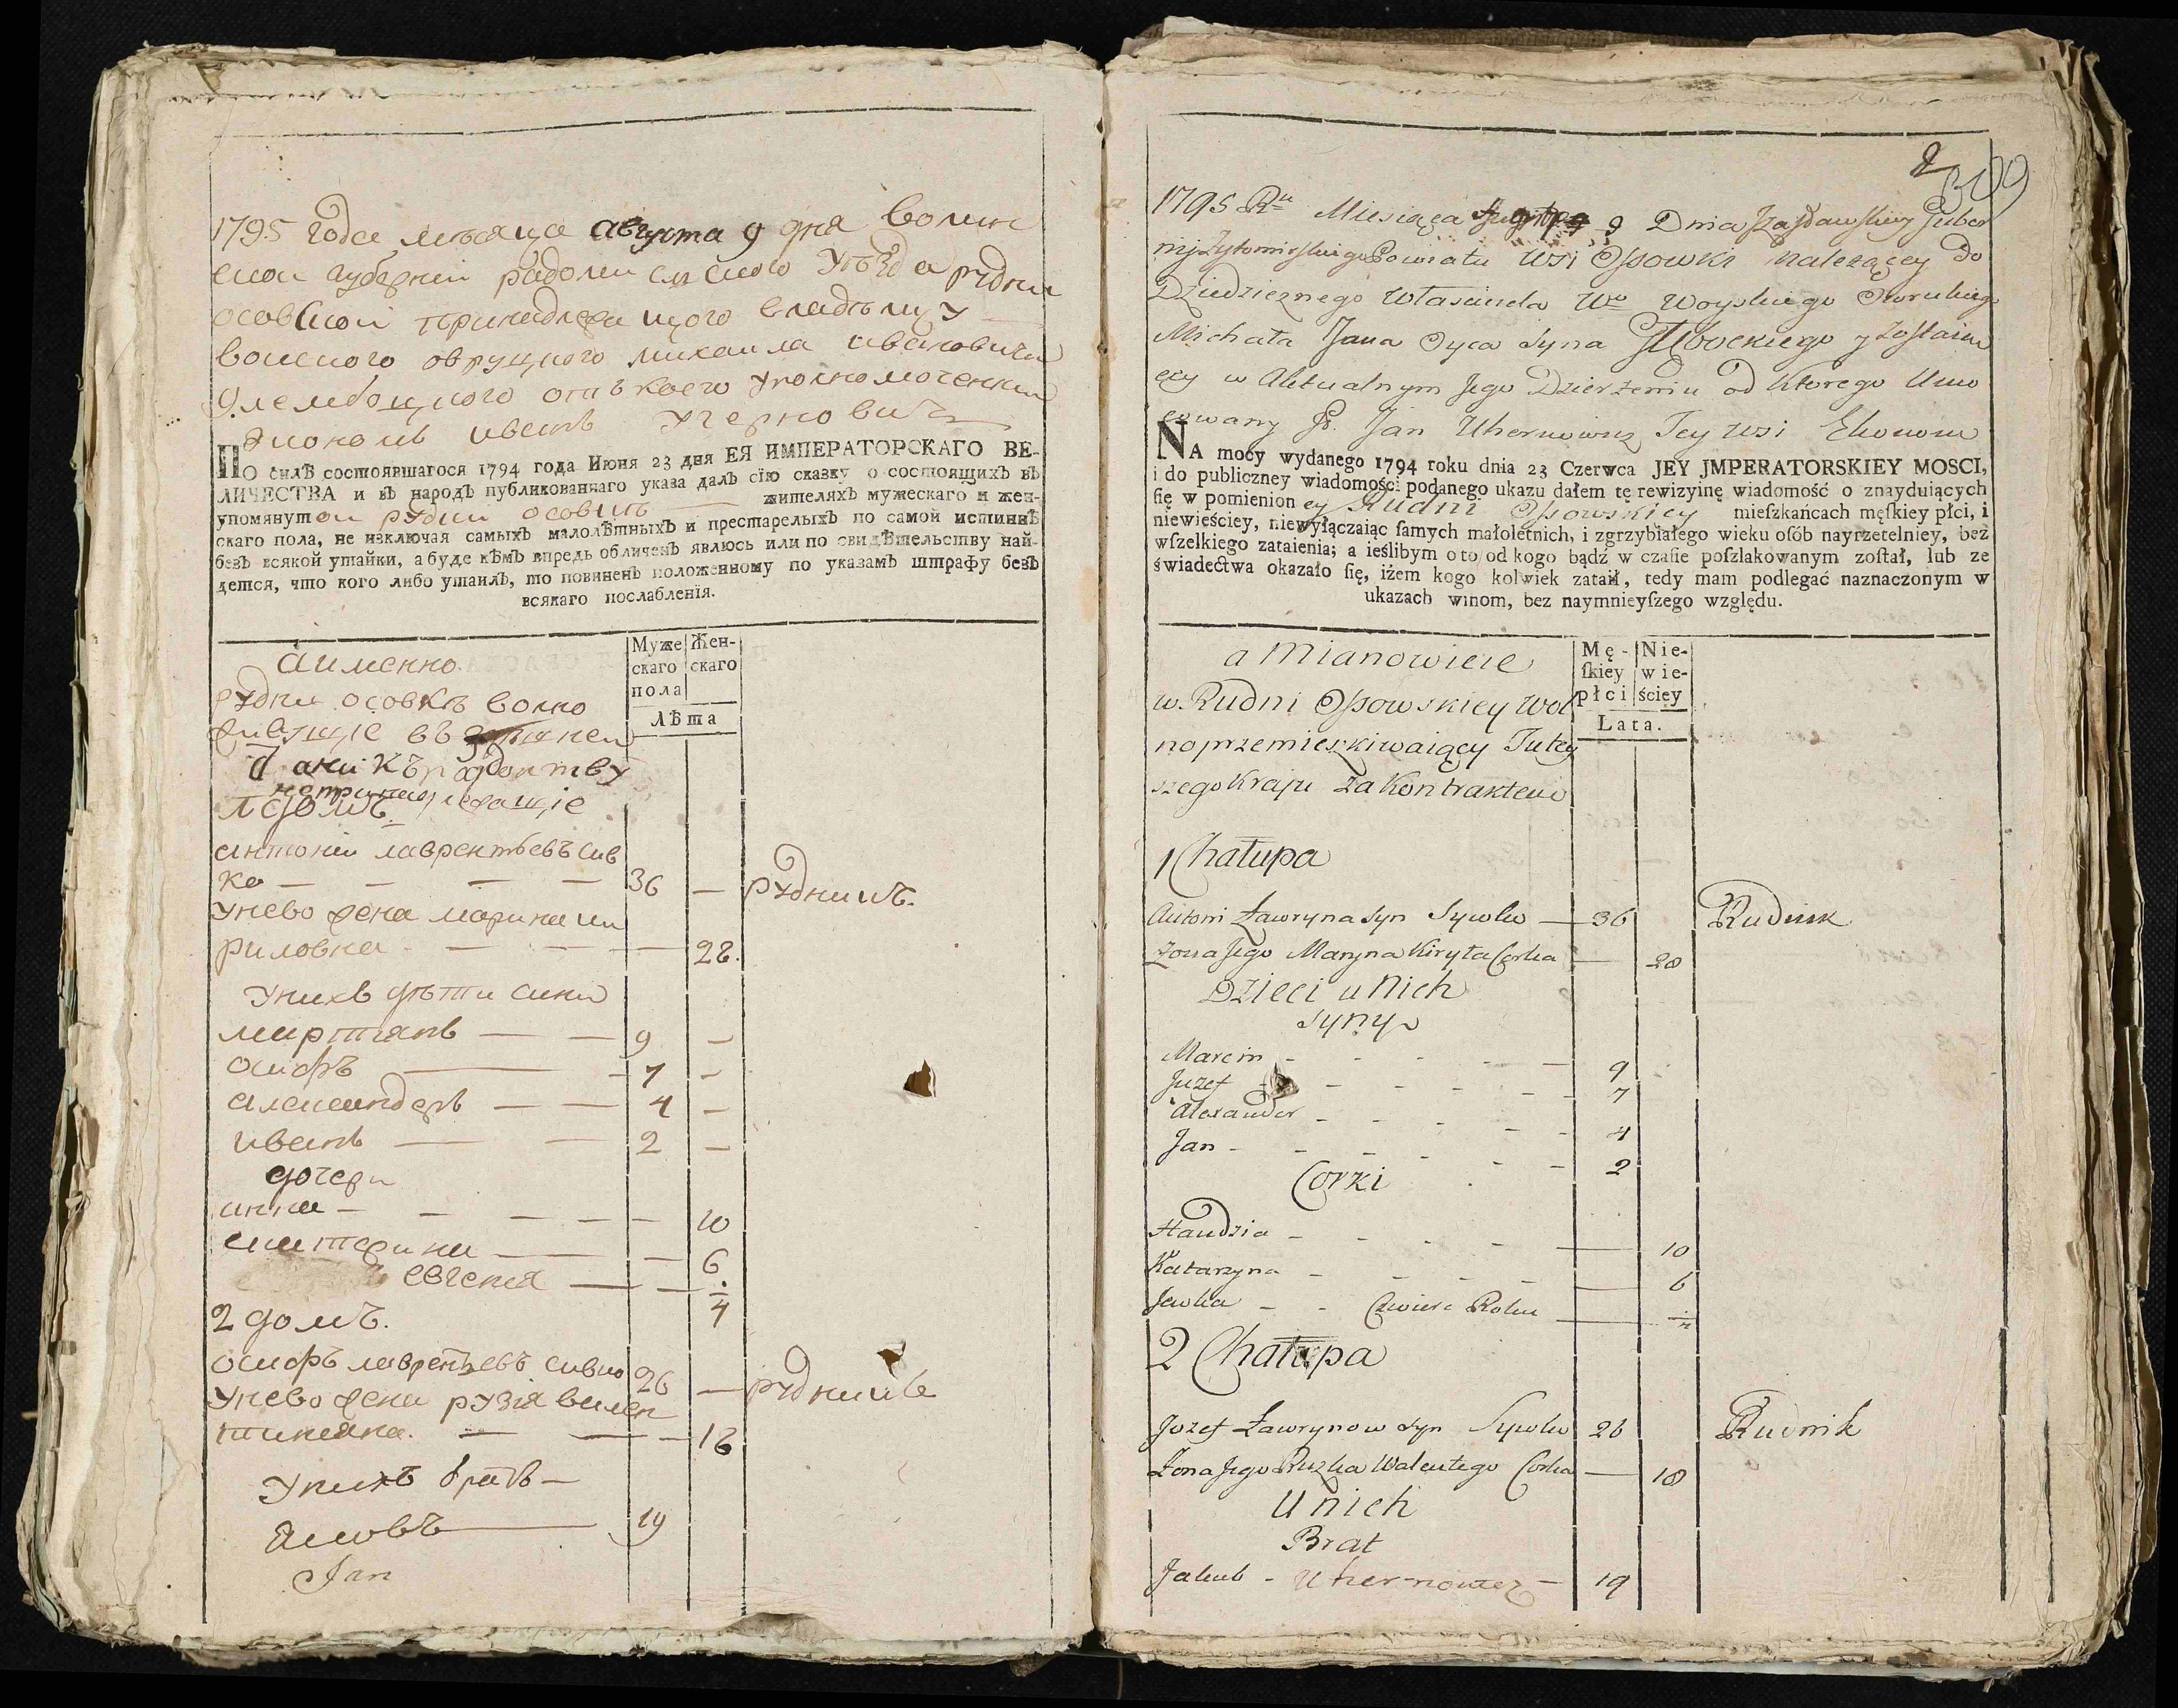 1795 года месяца августа 9 дня волин
ской губернїи радомисмского уезда рудни
осовской принадлежащого владельцу
войского овруцкого михаила ивановича
глембоцкого отъ коего уполномоченни
економъ иванъ угерновичъ
ПО силѣ состоявшагося 1794 года Июня 23 дня ЕЯ ИМПЕРАТОРСКАГО ВЕ-
ЛИЧЕСТВА и въ народъ публикованнаго указа далъ сїю сказку о состоящихъ въ
упомянутой рудни осовкъ жителяхъ мужескаго и жен-
скаго пола, не изключая самыхъ малолѣтныхъ и престарелыхъ по самой истиннѣ
безъ всякой утайки, а буде кѣмъ впредь обличенъ явлюсь или по свидѣтельству най-
дется, что кого либо утаилъ, то повиненъ положенному по указамъ штрафу безъ
всякаго послабленїя.
аименно
Муже
скаго
пола
Жен-
скаго
Лѣта
рудни осовкъ волно
живущие въ
ани къ
непринадлежащие
1 домъ
антоній лаврентьевъ сив
ко — — — — 36 — рудникъ.
унево жена марина ки
риловна — — — 28.
унихъ дети сини
мартинъ — — 9 —
осифъ — — 7 —
александеръ — — 4 —
иванъ — — 2 —
дочери
анна — — — — — 10
екатерина — — 6
евгения — — ¼
2 домъ.
осифъ лаврентьевъ сивко 26 — рудникъ
унево жена рузя вален
тиновна. — — — 18
унихъ братъ —
яковъ — 19
Jan
2
309
1795 Ru Miesiąca Augusta 9 Dnia Jzasławskiey Guber
nij Zytomirskiego Powiatu Wsi Ossowki należącey do
Dziedzicznego Własciciela Wo Woyskiego Owruckiego
Michała Jana Oyca Syna Głębockiego y zostaiu
ęcy w Aktualnym Jego Dzierżeniu od Ktorego Umo
cowany Jan Uhernowicz Tey wsi Ekonom
NA mocy wydanego 1794 roku dnia 23 Czerwca JEY JMPERATORSKIEY MOSCI,
i do publiczney wiadomości podanego ukazu dałem tę rewizyinę wiadomość o znayduiących
ſię w pomienion ey Rudni Ossowskiey mieſzkańcach męſkiey płci, i
niewieściey, niewyłączaiąc ſamych małoletnich, i zgrzybiałego wieku osób nayrzetelniey, bez
wſzelkiego zataienia; a ieślibym o to od kogo bądź w czaſie poſzlakowanym zoſtał, lub ze
świadectwa okazało ſię, iżem kogo kolwiek zataił, tedy mam podlegać naznaczonym w
ukazach winom, bez naymnieyſzego względu.
a Mianowicie
Mę-
ſkiey
płci
Nie-
wie-
ściey
Łata.
w Rudni Ossowskiey Wol
no przemieszkiwaiący Tutey
szego Kraju za Kontraktem
1 Chałupa
Antoni Ławryna Syn Sywko — 36 Rudnik
Zona Jego Maryna Kiryła Corka — 28
Dzieci u Nich
Syny
Marcin - - - - — 9
Juzef - - - - - 7
Alexander - - - - - 4
Jan - - - - - 2
Corki
Handzia - - - - — 10
Katarzyna - - - - — 6
Jewka - - Cwierć Roku — ¼
2 Chałupa
Jozef Ławrynow Syn Sywko 26 Rudnik
Zona Jego Ruzka Walentego Corka — 18
U nich
Brat
Jakub - Uhernowicz — 19